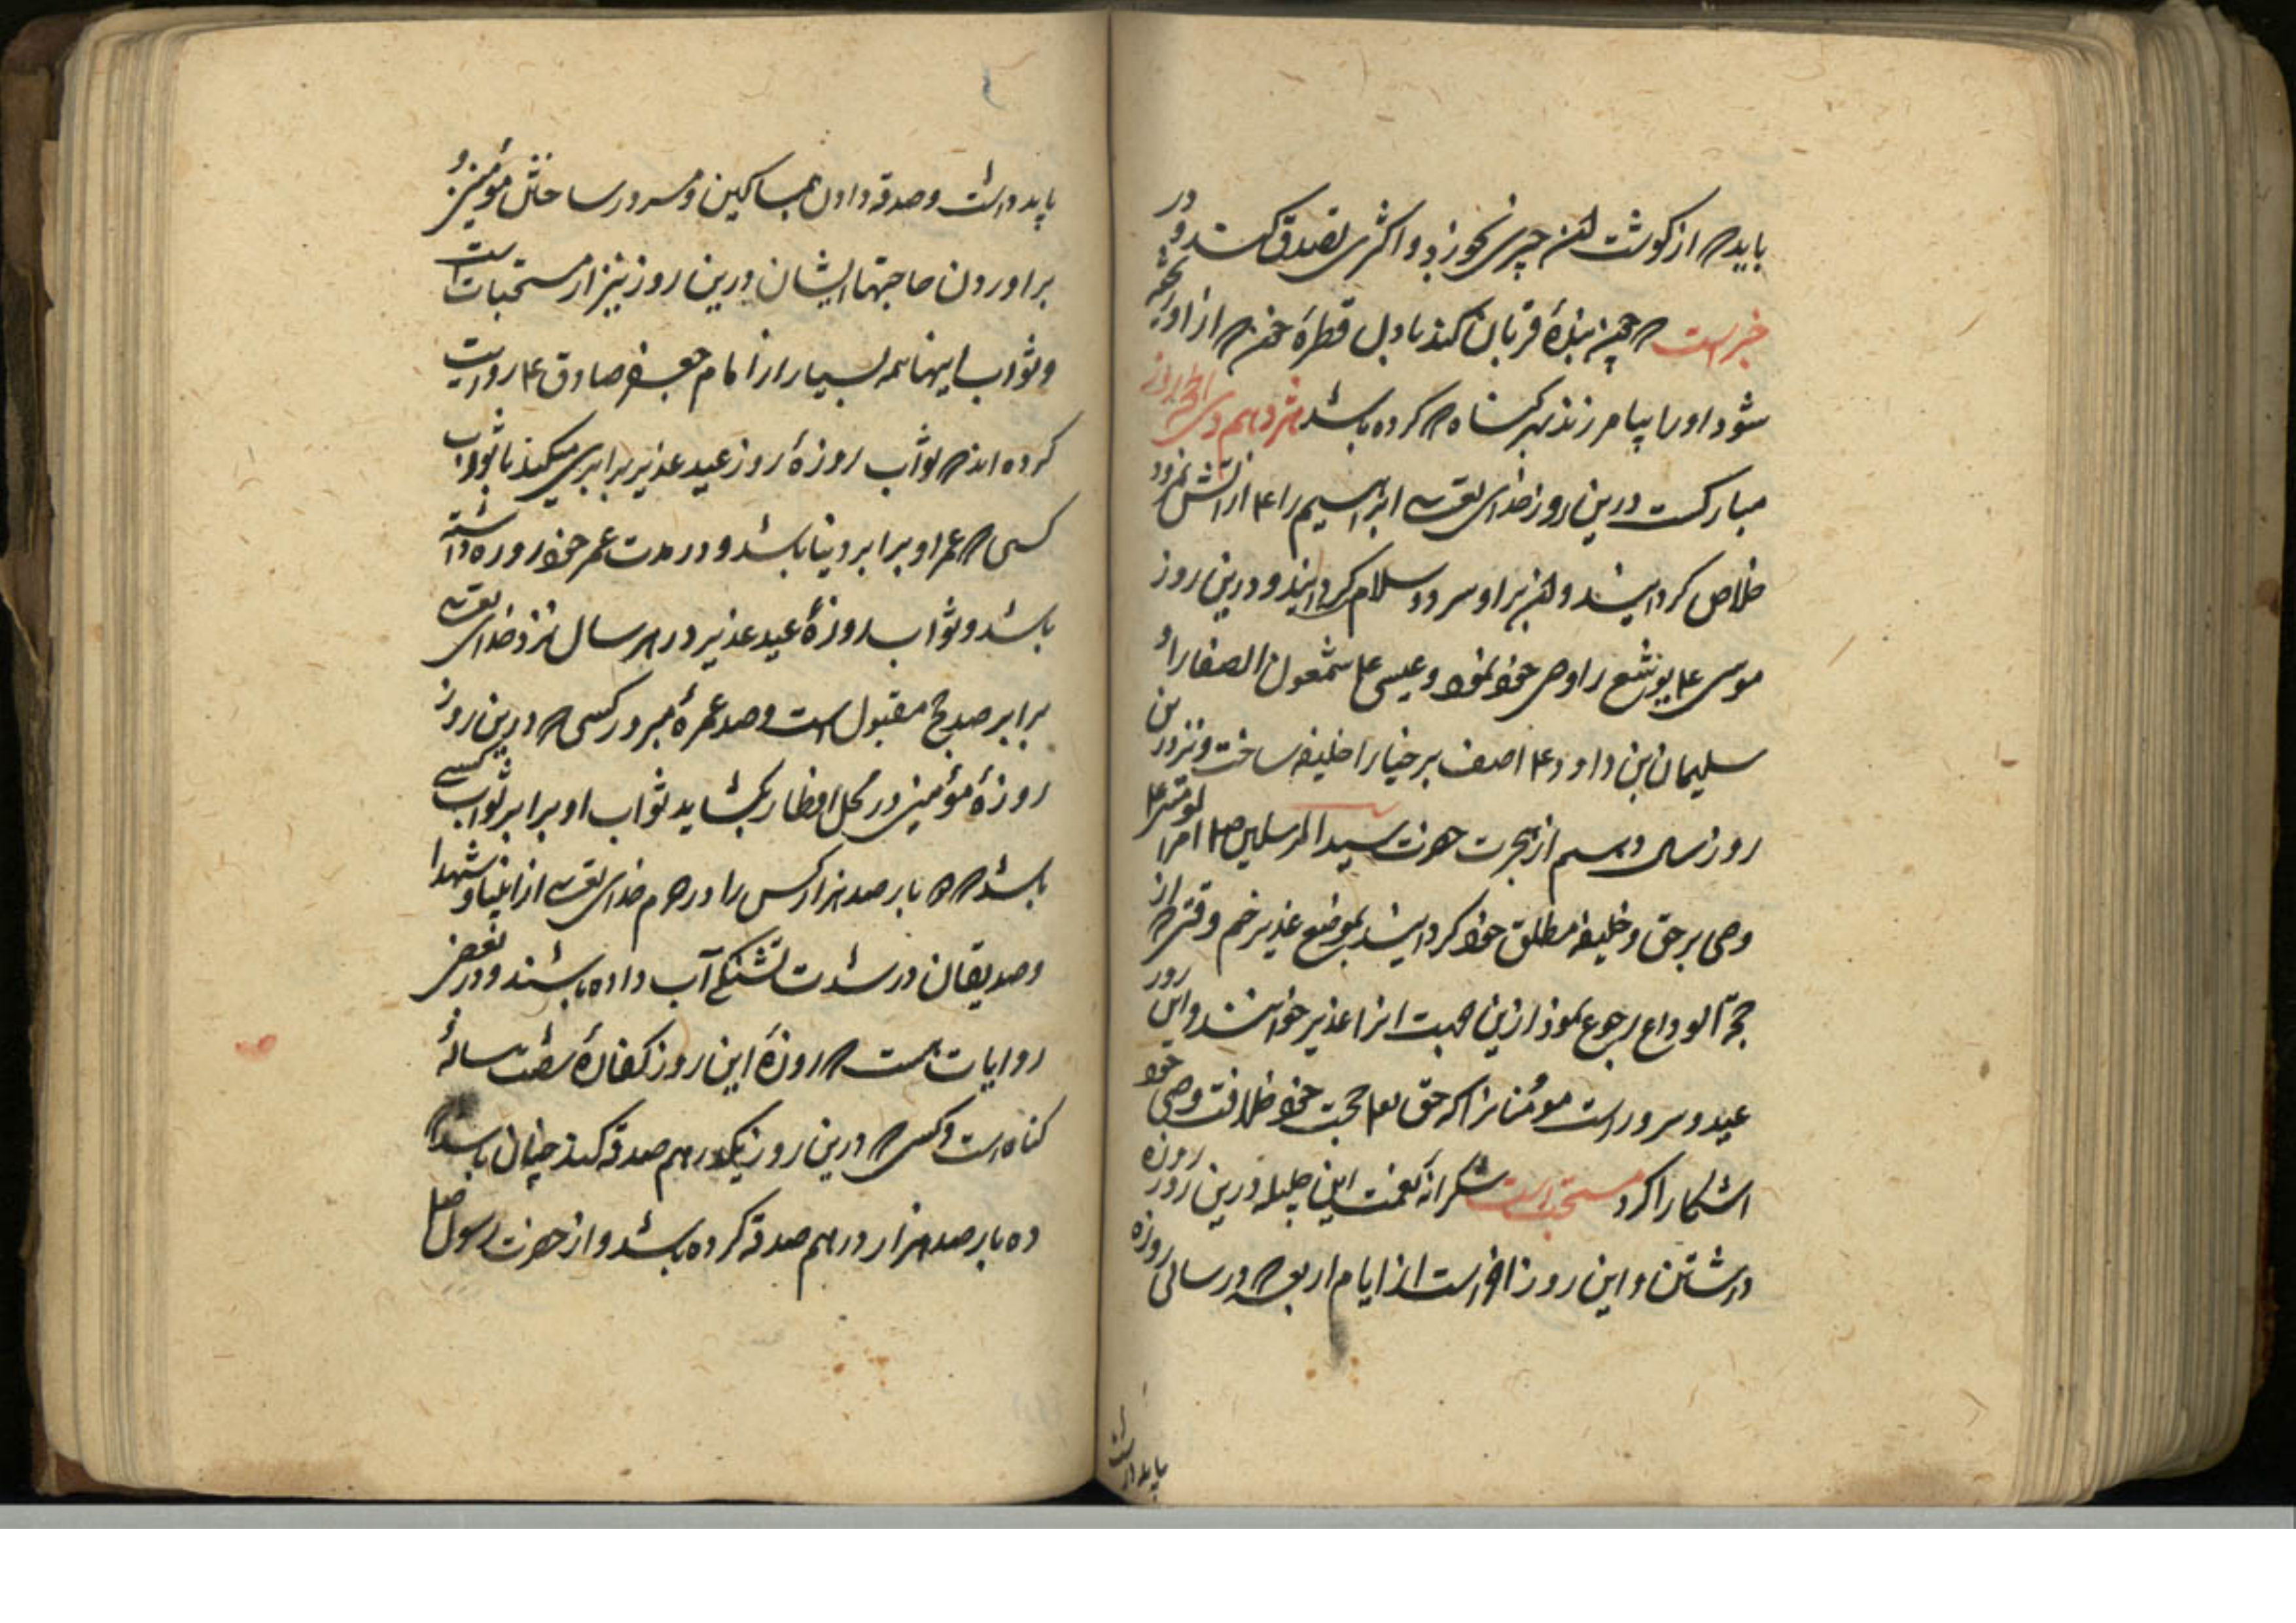 باید که از گوشت آن چیزی بخورند و اکثری تصدق کنند و در
خبر است که چون بنده قربان کند باول قطرهٔ خون که از او ریخته
شود او را بیامرزند هر گناه که کرده باشد هژدهم ذی الحجه روز
مبارکست درین روز خدای تعالی ابراهیم را ع از آتش نمرود
خلاص گردانید و آتش بر او سرد و سلام گردانید و درین روز
موسی ع یوشع را وصی خود نمود و عیسی ع شمعون الصفا را و
سلیمان بن داود ع اصف برخیا را خلیفه ساخت و نیز درین
روز سال دهم از هجرت حضرت سید المرسلین ص امیر المومنین ع
وصی بر حق و خلیفه مطلق خود گردانید بموضع غدیر خم وقتی که از
حجة الوداع رجوع نمود ازین جهت انرا غدیر خوانند و این روز
عید و سرور است مؤمنانرا که حق تعا حجت خود خلافت وصی خود
اشکارا کرد مستحب است شکرانه نعمت این جلیله درین روز روزه
داشتن و این روز آخر است از ایام اربعه که در سالی روزه
باید داشت
باید داشت و صدقه دادن بمساکین و مسرور ساختن مؤمنین و
براوردن حاجتها ایشان درین روز نیز از مستحبات است
و ثواب اینها همه بسیار از امام جعفر صادق ع روایت
کرده اند که ثواب روزهٔ روز عید غدیر برابری میکند با ثواب
کسی که عمر او برابر دنیا باشد و در مدت عمر خود روزه داشته
باشد و ثواب روزهٔ عید غدیر در هر سال نزد خدای تعالی
برابر صد حج مقبول است و صد عمرهٔ مبرور کسی که درین روز
روزهٔ مؤمنی در محل افطار بگشاید ثواب او برابر ثواب کسی
باشد که ده بار صد هزار کس را در حرم خدای تعالی از انبیا و شهدا
و صدیقان در شدت تشنگی آب داده باشند و در بعضی
روایات هست که روزهٔ این روز کفارهٔ شصت سالهٔ
گناه است و کسی که درین روز یکدرهم صدقه کند چنان باشد که
ده بار صد هزار درهم صدقه کرده باشد و از حضرت رسول ص